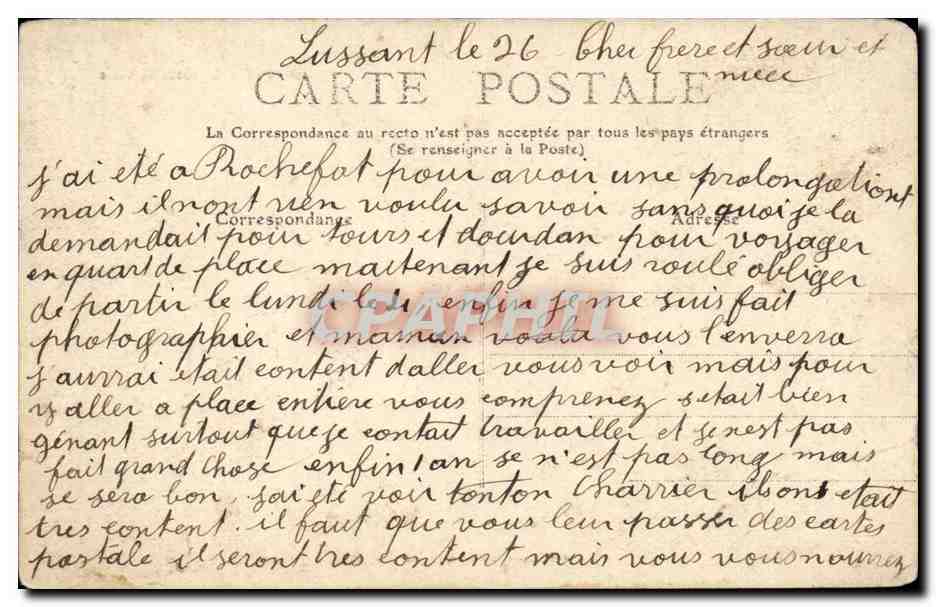 Lussant le 26 Cher frere et sœur et
niece
CARTE POSTALE
La Correspondance au recto n'est pas acceptée par tous les pays étrangers
(Se renseigner à la Poste)
j'ai été a Rochefot pour avoir une prolongationt
mais ilnont rien voulu savoir sans quoi je la
Correspondance
Adresse
demandait pour tours et dourdan pour voyager
en quart de place maitenant je suis roulé obliger
de partir le lundi le enfin je me suis fait
CPAPHIL
photographier et maman voula vous l'enverra
j'aurrai etait content daller vous voir mais pour
y aller a place entière vous comprenez setait bien
génant surtout que je contait travailler et se nest pas
fait grand choze enfin 1 an se n'est pas long mais
se sera bon, jai eté voir tonton Charrier ils ont etait
tres content. il faut que vous leur passer des cartes
postale il seront tres content mais vous vous nourrez